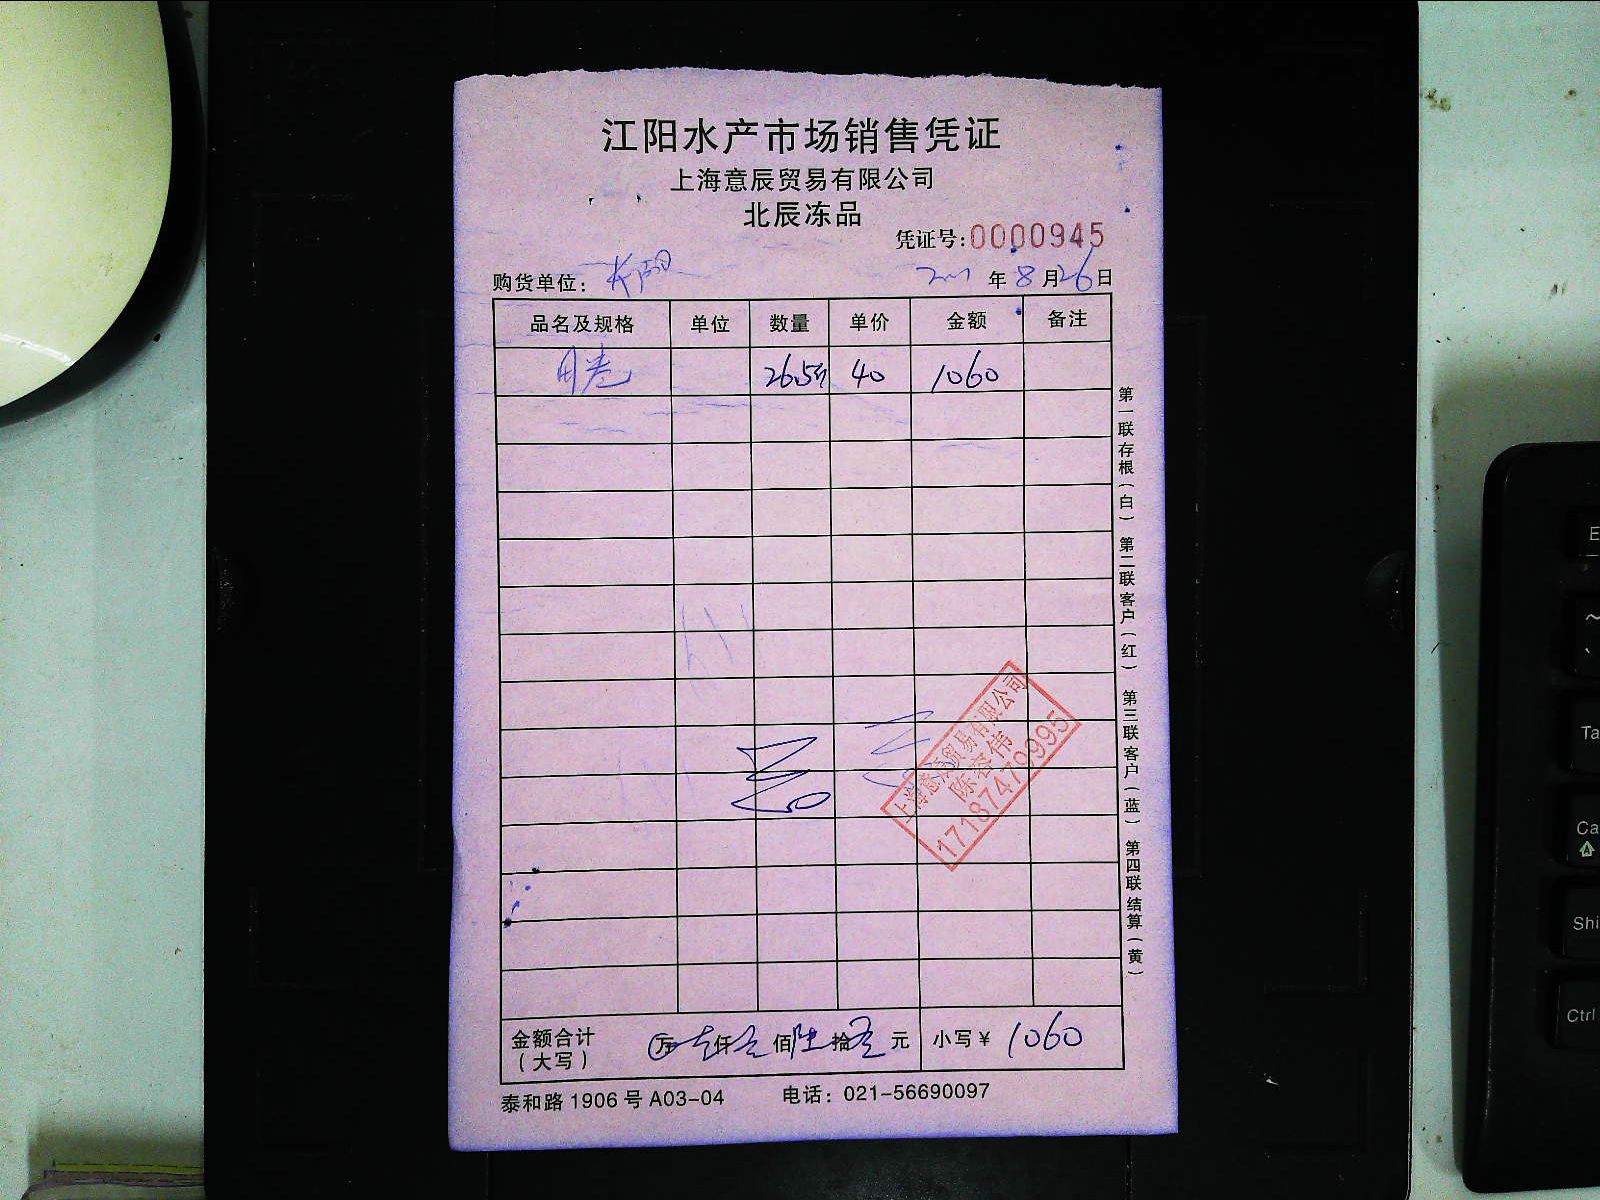 江阳水产市场销售凭证
上海意辰贸易有限公司
北辰冻品
凭证号:0000945
购货单位: 年8月26日
品名及规格 单位 数量 单价 金额 备注
26.5斤 40 1060
第一联存根(白) 第二联客户(红) 第三联客户(蓝) 第四联结算(黄)
上海意辰贸易有限公司
陈容伟
17187479995
金额合计 万壹仟零佰陆拾零元 小写¥1060
(大写)
泰和路1906号A03-04 电话: 021-56690097
Ctrl